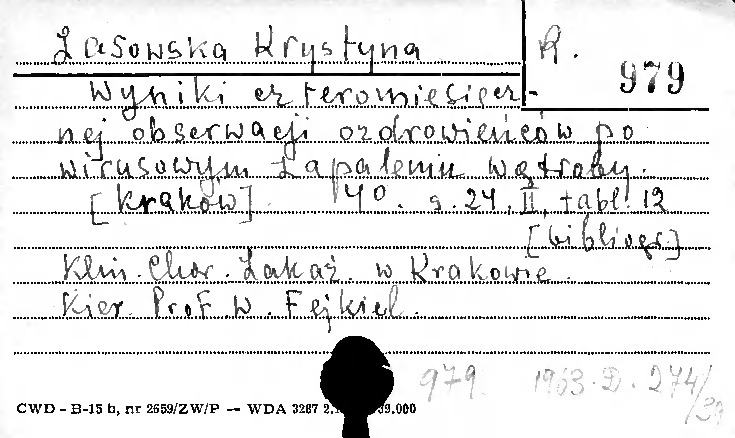 Lasowska Krystyna
R. 979
Wyniki czteromiesięcz-
nej obserwacji ozdrowieńców po
wirusowym zapaleniu wątroby.
[Kraków] 4°. s. 24, II, tabl. 12
[bibliogr.]
Klin. Chor. Zakaź. w Krakowie.
Kier. Prof. W. Fejkiel.
979. 1963.D.274/39
CWD - B-15 b, nr 2659/ZW/P — WDA 3287 2. 39.000